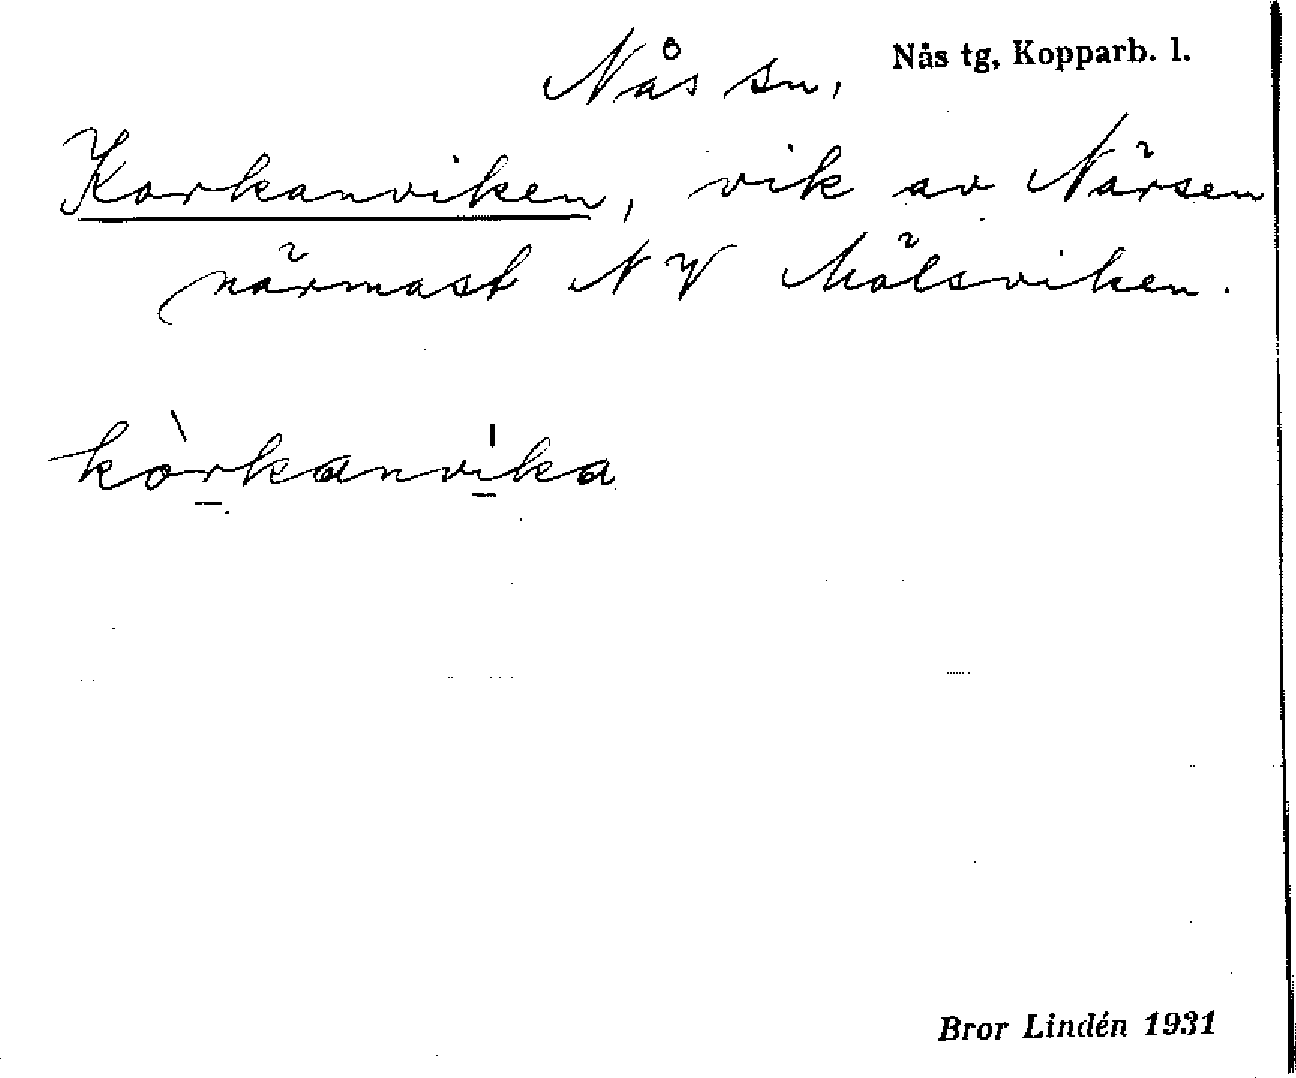 Nås sn, Nås tg, Kopparb. l.
Korkanviken, vik av Närsen
närmast NV Mälsviken.
kòrkanvika
Bror Lindén 1931